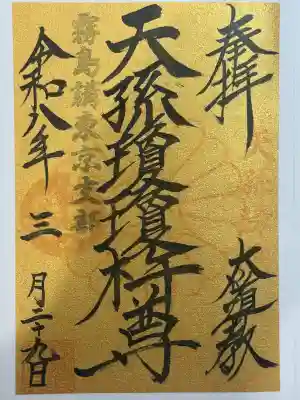 奉拝
大道教
天孫瓊瓊杵尊
霧島講東京支部
令和八年三月二十九日